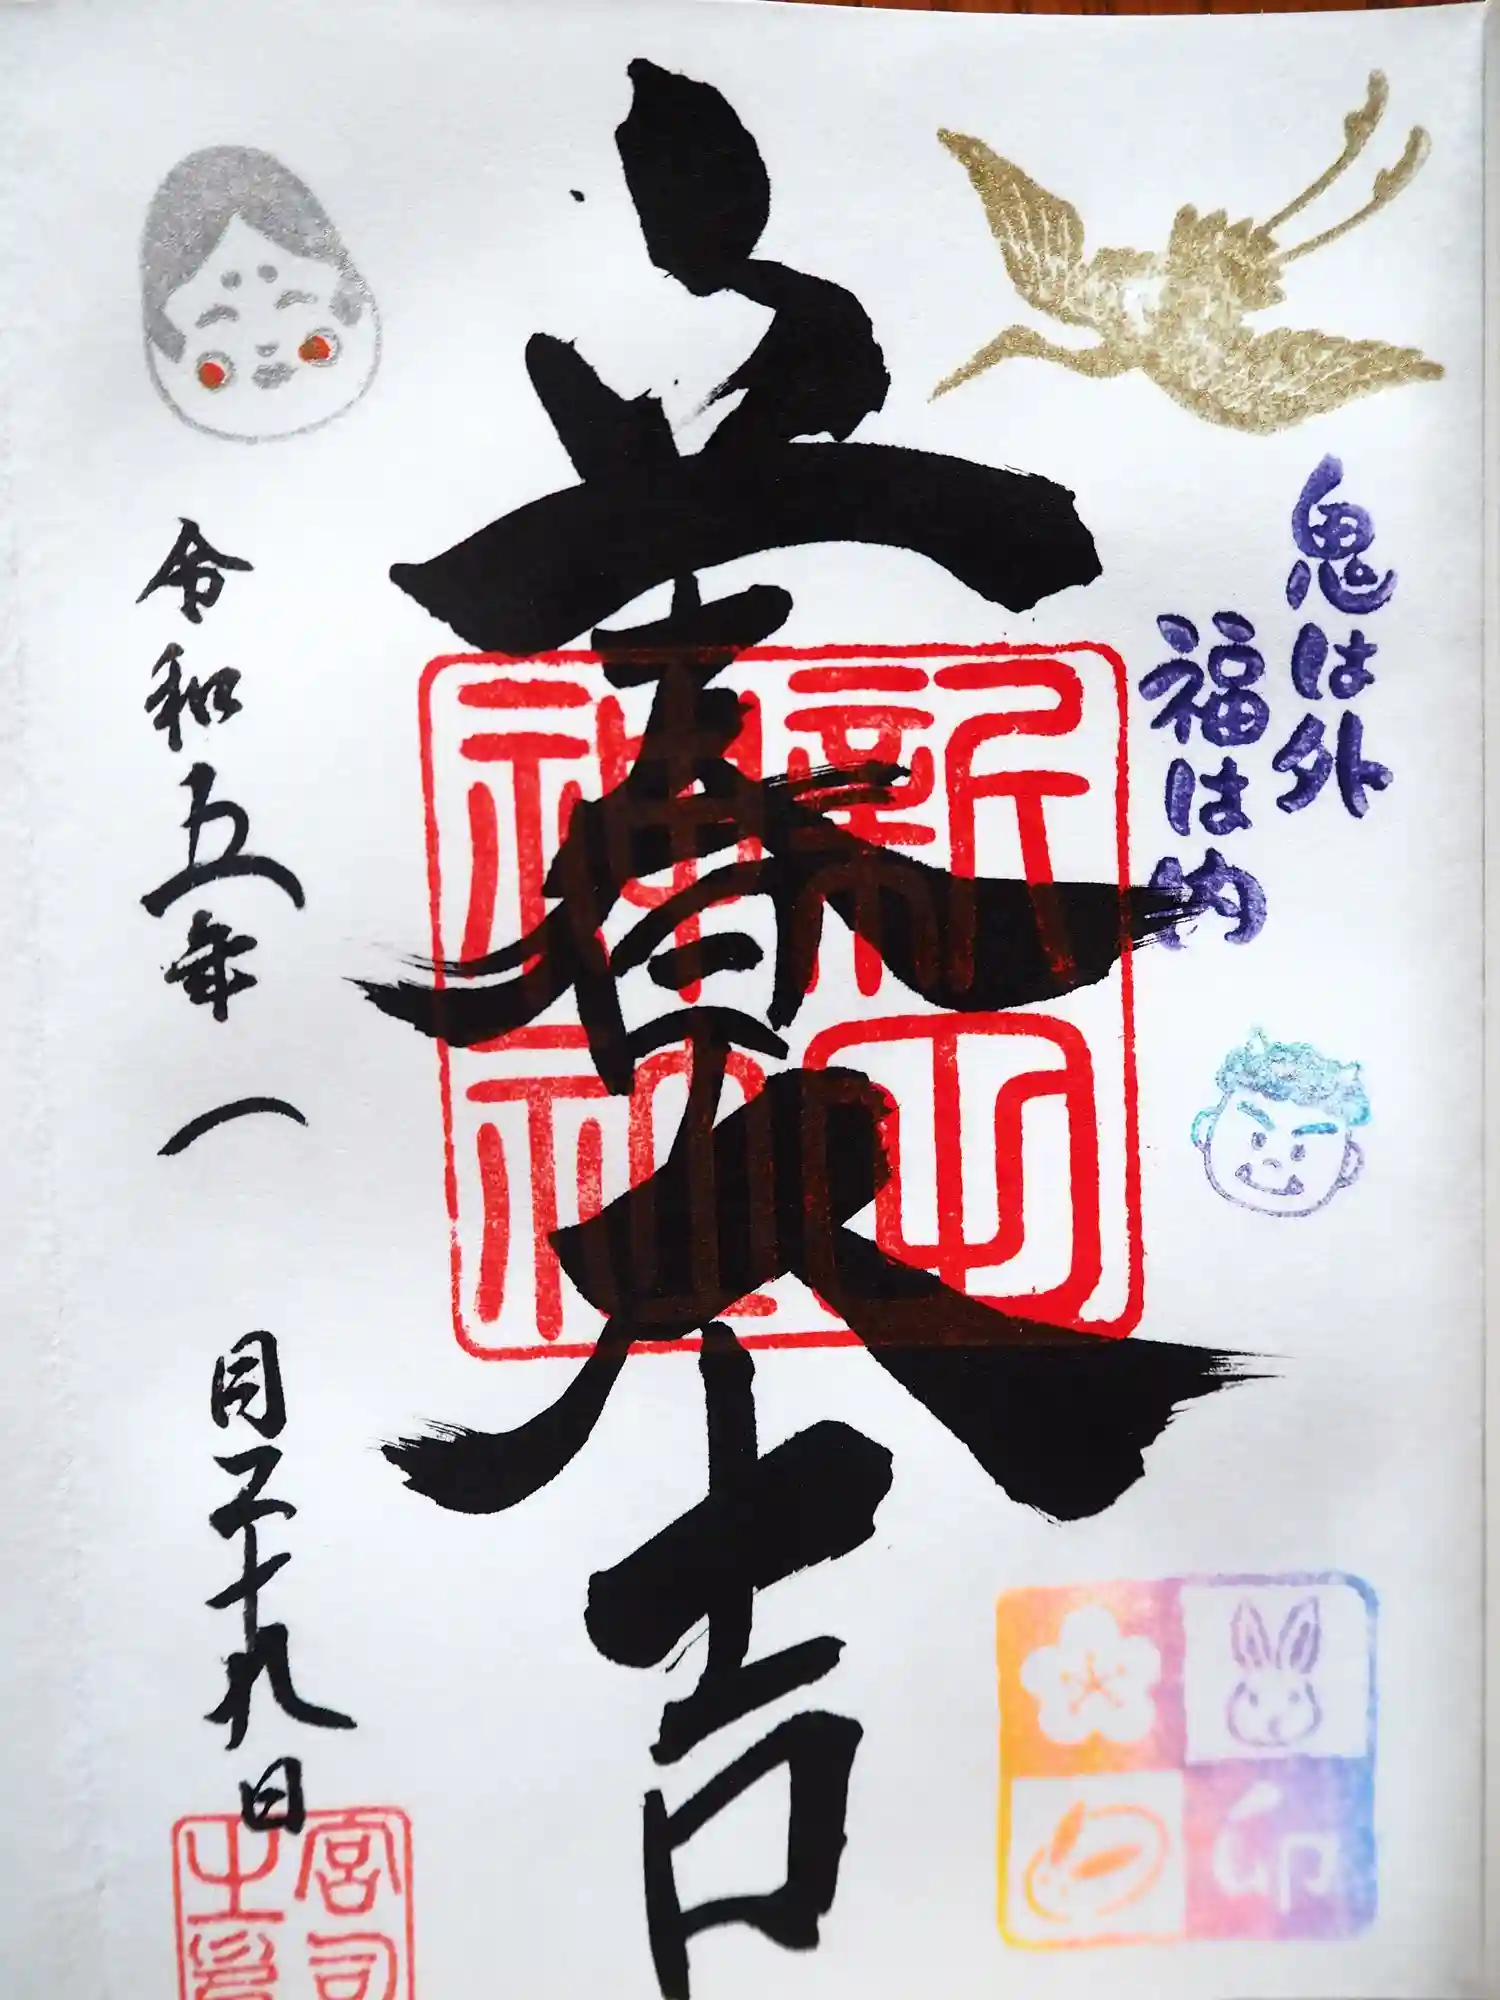 鬼は外
福は内
立春大吉
令和五年一月二十九日
神社
宮司
之印
卯